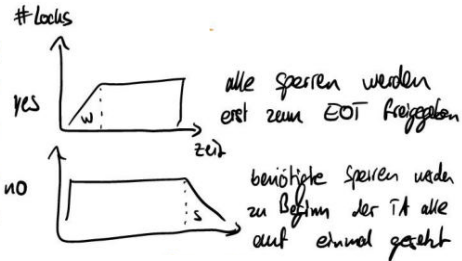 #Locks
yes
w
alle Sperren werden
erst zum EOT freigegeben
Zeit
no
s
benötigte Sperren werden
zu Beginn der TA alle
auf einmal gesetzt